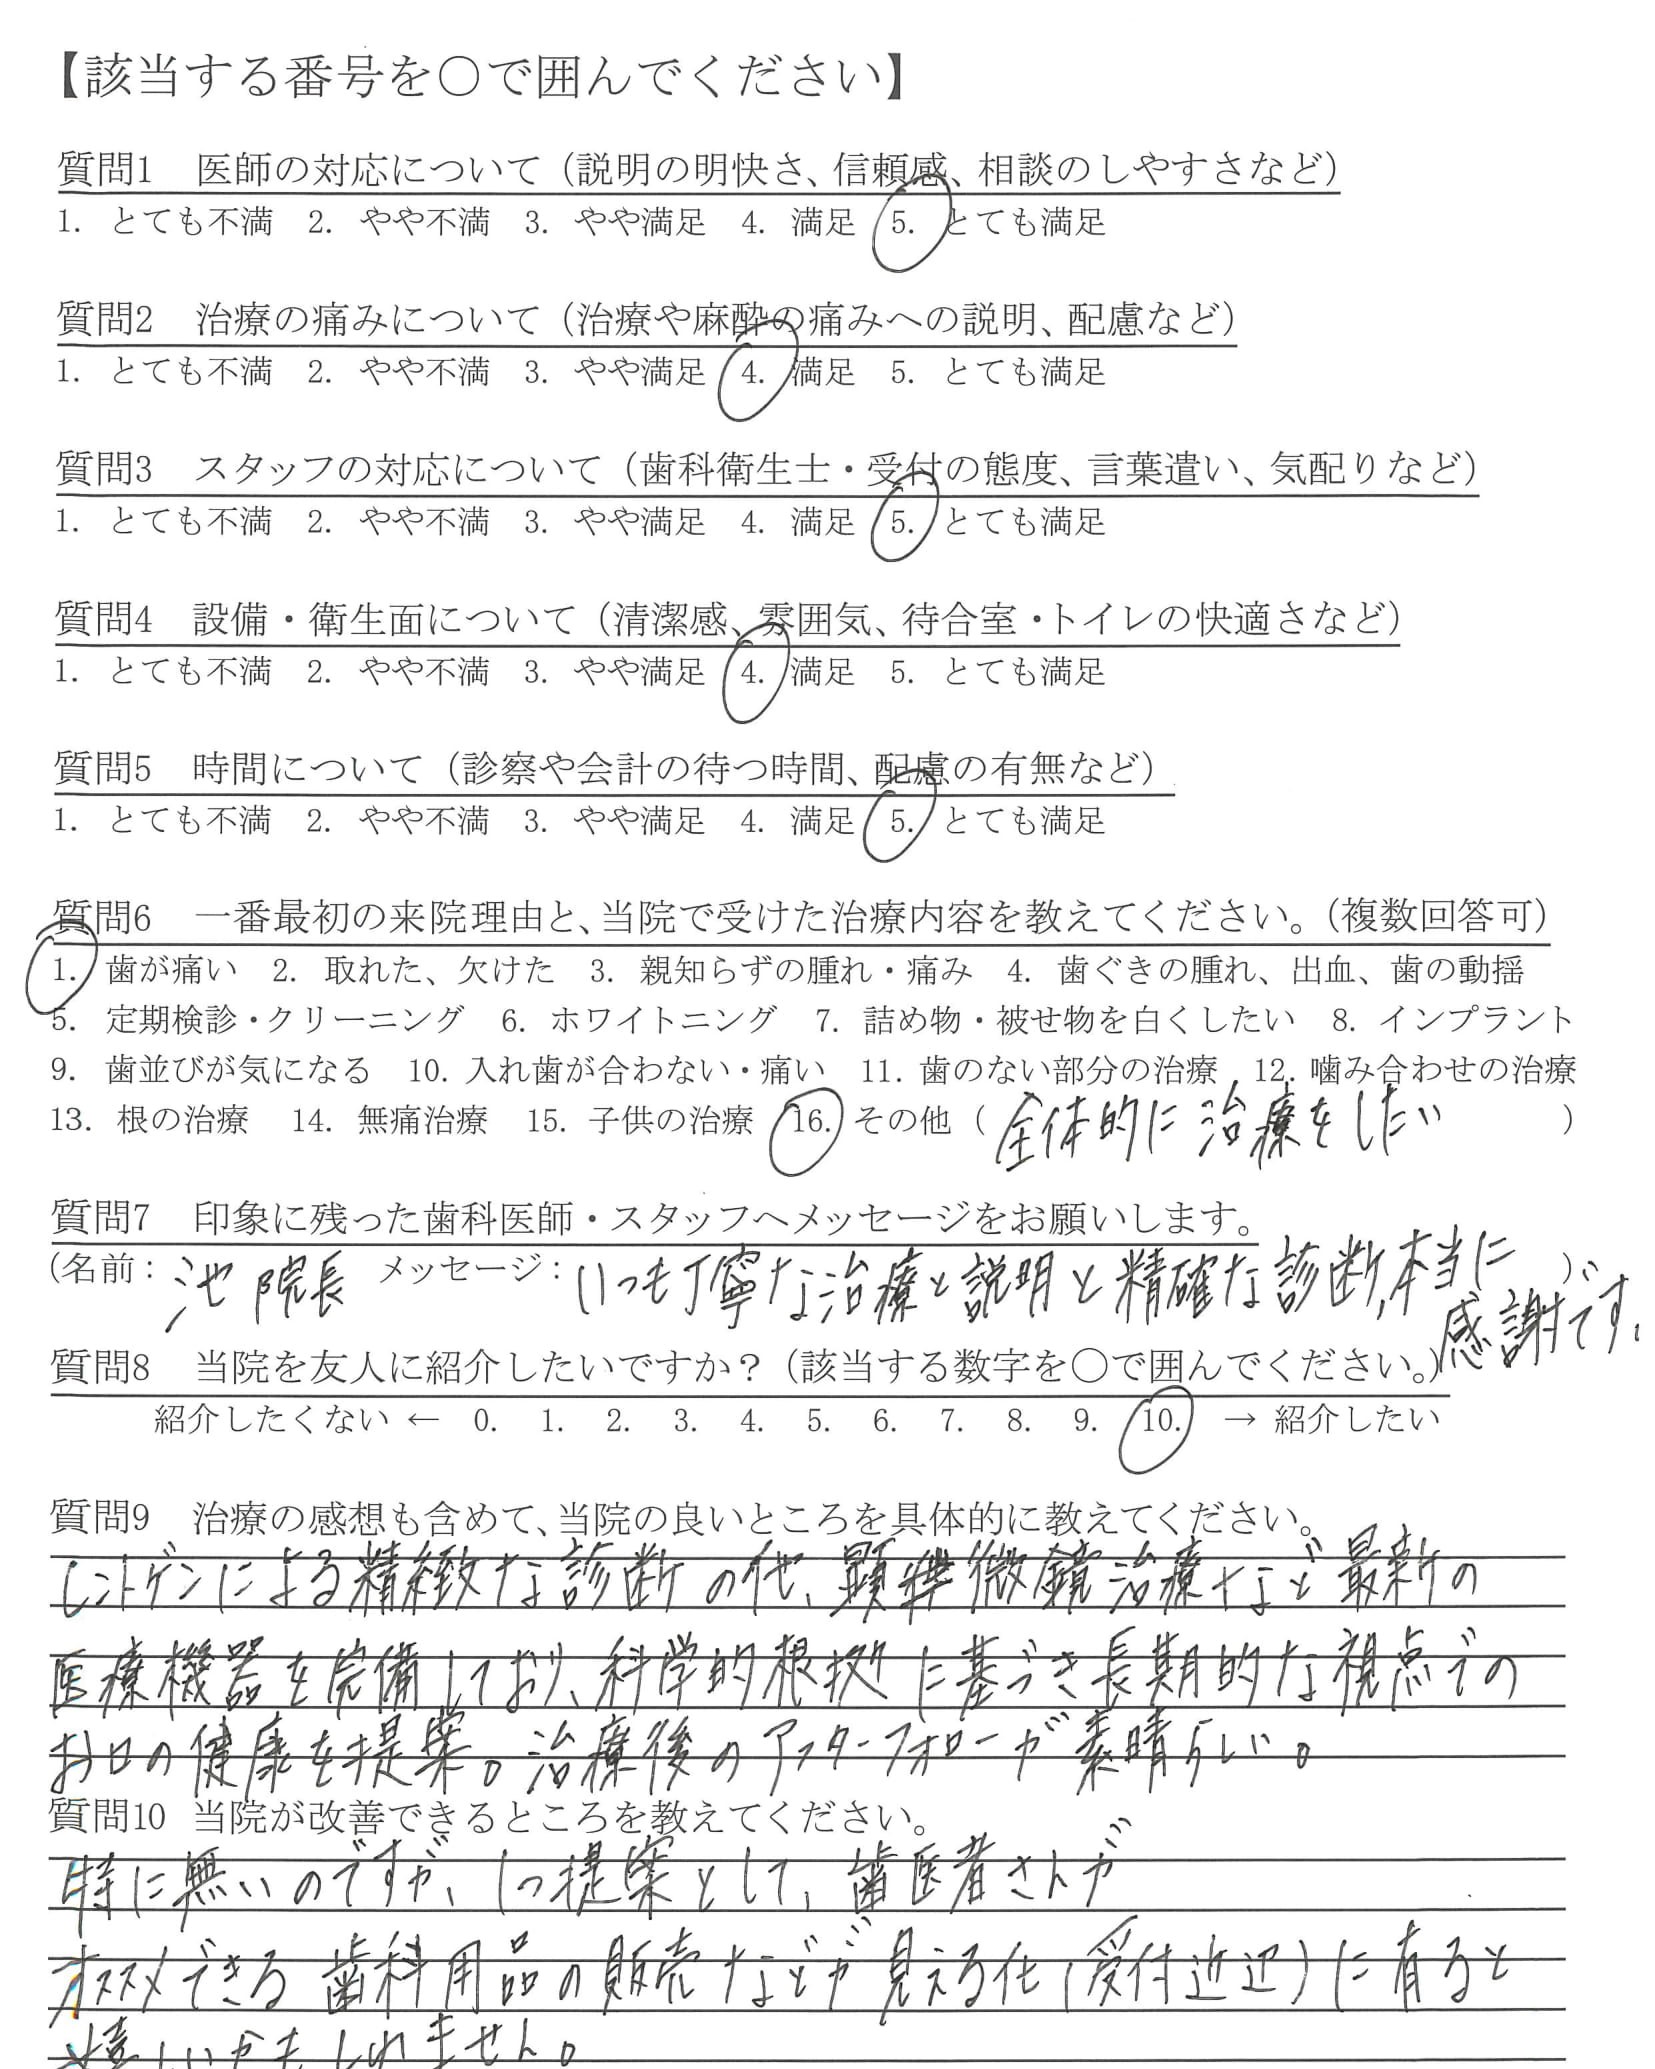 【該当する番号を〇で囲んでください】
質問1 医師の対応について（説明の明快さ、信頼感、相談のしやすさなど）
1. とても不満 2. やや不満 3. やや満足 4. 満足 5. とても満足
質問2 治療の痛みについて（治療や麻酔の痛みへの説明、配慮など）
1. とても不満 2. やや不満 3. やや満足 4. 満足 5. とても満足
質問3 スタッフの対応について（歯科衛生士・受付の態度、言葉遣い、気配りなど）
1. とても不満 2. やや不満 3. やや満足 4. 満足 5. とても満足
質問4 設備・衛生面について（清潔感、雰囲気、待合室・トイレの快適さなど）
1. とても不満 2. やや不満 3. やや満足 4. 満足 5. とても満足
質問5 時間について（診察や会計の待つ時間、配慮の有無など）
1. とても不満 2. やや不満 3. やや満足 4. 満足 5. とても満足
質問6 一番最初の来院理由と、当院で受けた治療内容を教えてください。（複数回答可）
1. 歯が痛い 2. 取れた、欠けた 3. 親知らずの腫れ・痛み 4. 歯ぐきの腫れ、出血、歯の動揺
5. 定期検診・クリーニング 6. ホワイトニング 7. 詰め物・被せ物を白くしたい 8. インプラント
9. 歯並びが気になる 10. 入れ歯が合わない・痛い 11. 歯のない部分の治療 12. 噛み合わせの治療
13. 根の治療 14. 無痛治療 15. 子供の治療 16. その他（全体的に治療をしたい）
質問7 印象に残った歯科医師・スタッフへメッセージをお願いします。
(名前：池院長 メッセージ：いつも丁寧な治療と説明と精確な診断、本当に）
感謝です。
質問8 当院を友人に紹介したいですか？（該当する数字を〇で囲んでください。）
紹介したくない ← 0. 1. 2. 3. 4. 5. 6. 7. 8. 9. 10. → 紹介したい
質問9 治療の感想も含めて、当院の良いところを具体的に教えてください。
レントゲンによる精緻な診断の他、顕微鏡治療など最新の
医療機器を完備しており、科学的根拠に基づき長期的な視点での
お口の健康を提案。治療後のアフターフォローが素晴らしい。
質問10 当院が改善できるところを教えてください。
特に無いのですが、1つ提案として、歯医者さんが
オススメできる歯科用品の販売などが見える化(受付近辺)に有ると
嬉しいかもしれません。